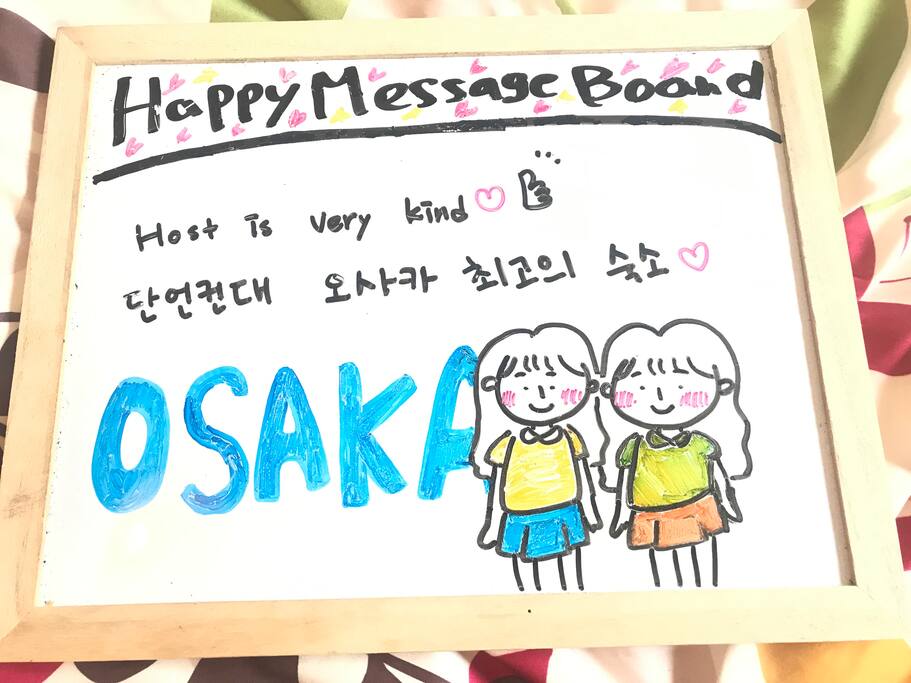 Happy Message Board
Host is very kind
단언컨대 오사카 최고의 숙소
OSAKA